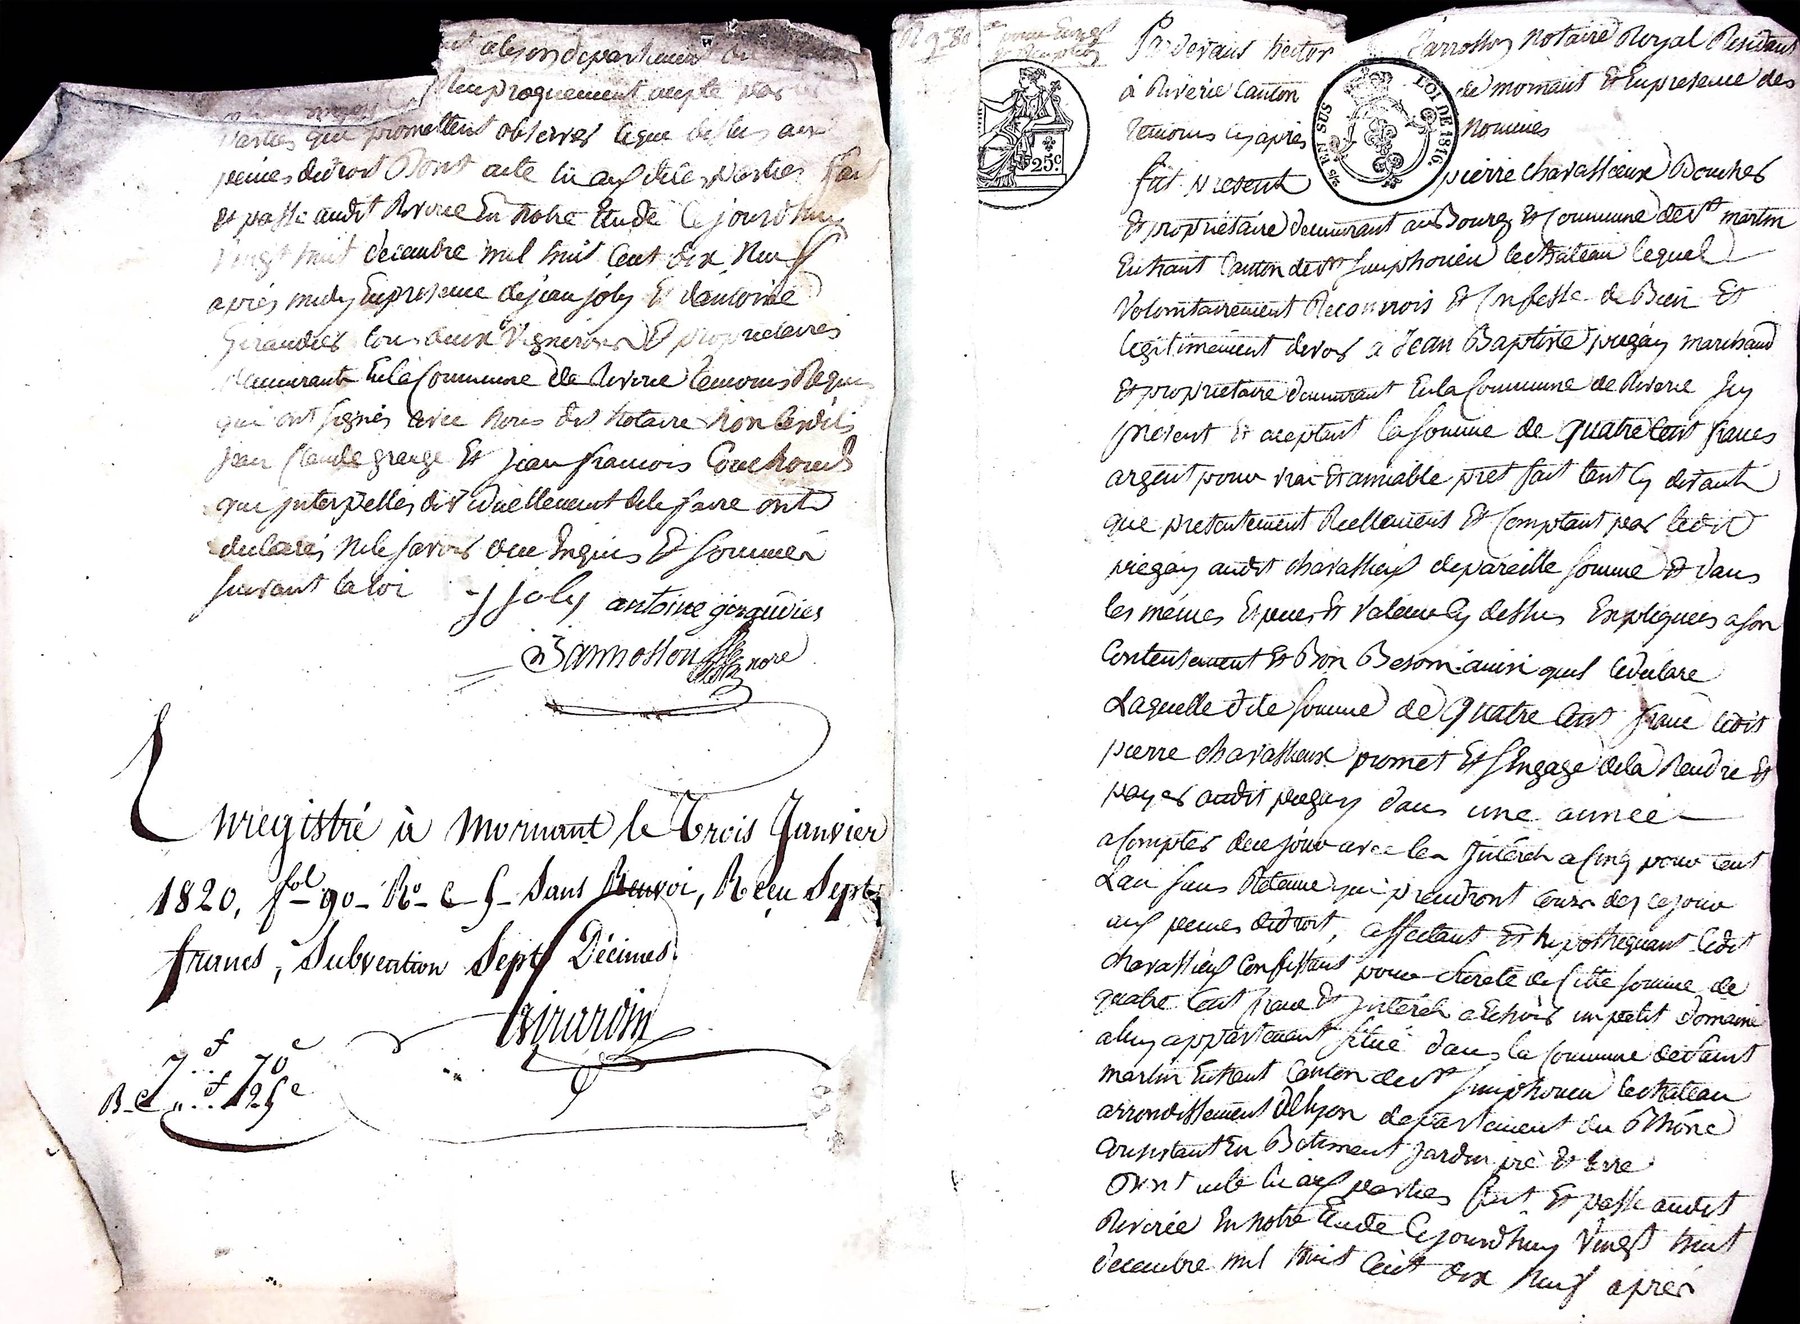 et alson departement du
Reciproquement accepté par les
parties qui promettent observer leque dessus aux
peines de droit Dont acte lu aux dites parties fait
et passé audit Riverie En notre Etude Cejourdhuy
Vingt huit decembre mil huit Cent dix Neuf
après midy En presence de jean joly Et d'antoine
Giraudier tous deux Vignerons Et proprietaires
demeurants En la Commune de Riverie temoins Requis
qui ont signés avec Nous dit Notaire Non lesdits
jean Claude grange Et jean francois Couchoud
que interpelles dividuellement dele faire onts
declarés Ne le savoir de ce Enquis Et sommés
suivant la loi
J Joly antoine giraudier
Barrosson nore
Enregistré à Mornant le Trois Janvier
1820, fol 90 Ro C 5 Sans Renvoi, Reçu Sept
francs, Subvention Sept Décimes.
Girardin
7f 70c
B-C „f 25c
pour Enregt
Par devant hector Barrosson Notaire Royal Residant
à Riverie Canton de mornant Et En presence des
temoins cy après Nommés
EN SUS LOI DE 1816.
25c
fut present pierre chavassieux Boucher
Et proprietaire demeurant au Bourg Et Commune de St martin
En haut Canton de St Simphorien le chateau lequel
Volontairement Reconnois Et Confesse de Bien Et
legitimement devoir à Jean Baptiste piegay marchand
Et proprietaire demeurant En la Commune de Riverie Icy
present Et aceptant la somme de quatre Cent francs
argent pour vrai Et amiable pret fait tant Cy devant
que presentement Reellement Et Comptant par ledit
piegay audit chavassieux de pareille somme Et dans
les mémes Especes Et Valeur Cy dessus Expliquées a son
Contentement Et Bon Besoin ainsi quil le declare
Laquelle dite somme de Quatre Cent franc ledit
pierre chavassieux promet Et s'Engage de la Rendre Et
payer audit piegay dans une année
a Compter de ce jour avec les Interets a Cinq pour Cent
L'an sans Retenue qui prendront cours des ce jour
aux peines de droit, affectant Et hypothequant ledit
chavassieux Confessant pour sureté de ladite somme de
quatre Cent franc Et Interets a Echoir un petit Domaine
a luy appartenant situé dans la Commune de saint
martin En haut Canton de St Simphorien le chateau
arrondissement de Lyon departement du Rhône
Consistant En Batiment Jardin pré Et terre
Dont acte lu aux parties fait Et passé audit
Riverie En notre Etude Cejourdhuy Vingt huit
decembre mil huit Cent dix Neuf après